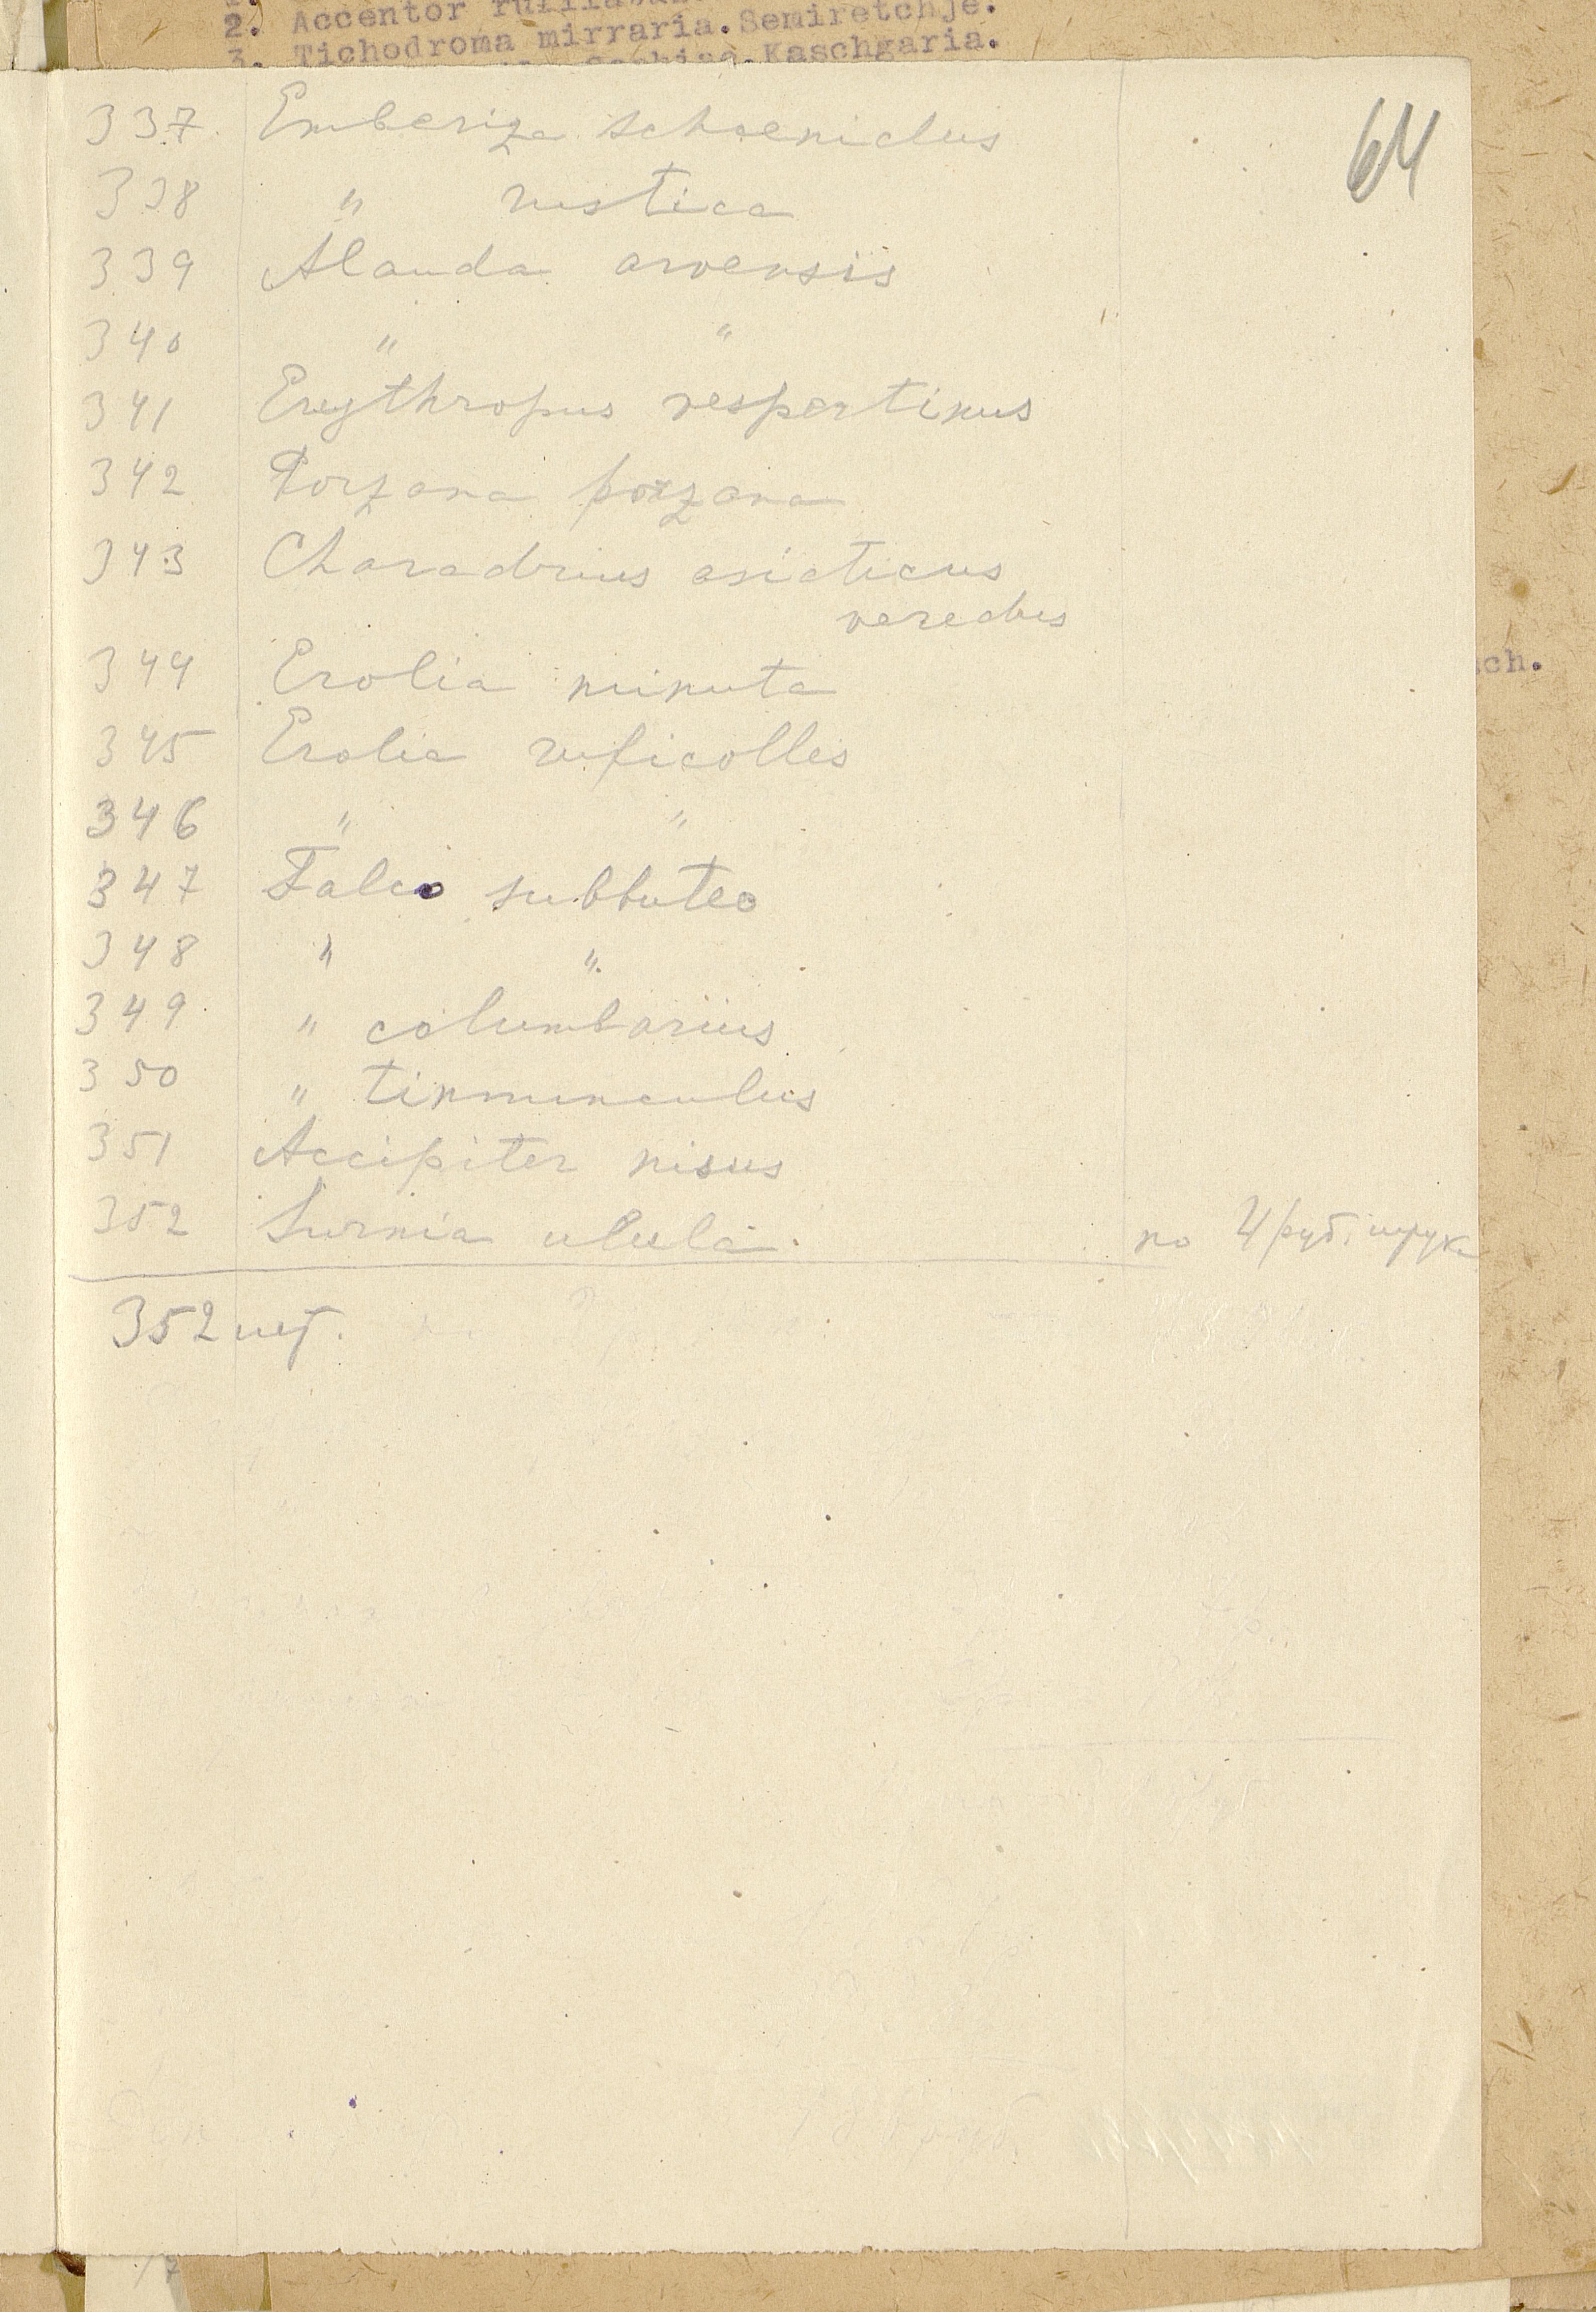 2. Accentor
3. Tichodroma mirraria. Semiretchje.
Kaschgaria.
64
337. Emberiza schoeniclus
338 " rustica
339 Alauda arvensis
340 " "
341 Erythropus vespertinus
342 Porzana porzana
343 Charadrius asiaticus
veredus
344 Erolia minuta
sch.
345 Erolia ruficolles
346 " "
347 Falco subbuteo
348 " "
349 " columbarius
350 " tinnunculus
351 Accipiter nisus
352 Surnia ulula. по 4 руб. штука
352 шт.